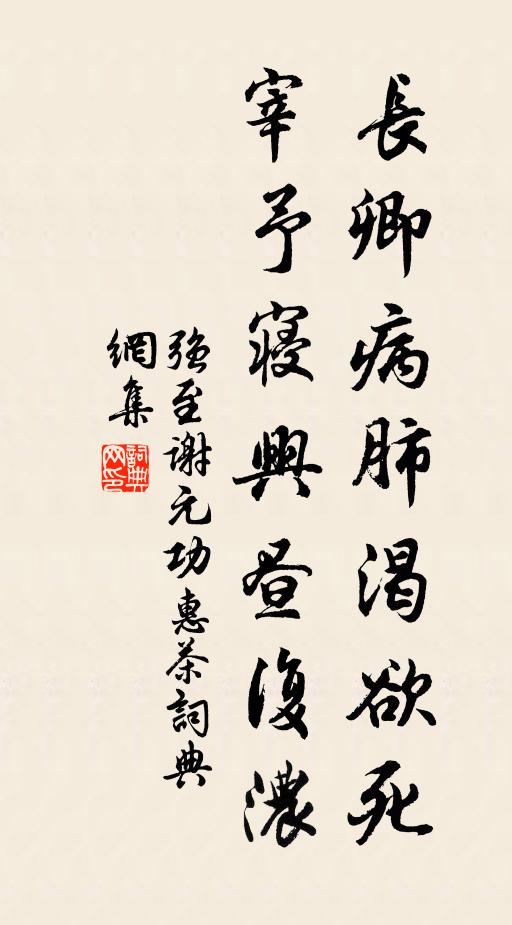 長卿病肺渴欲死
宰予寢興晝復濃
強至謝元功惠茶詞典
網集
詞典
网印